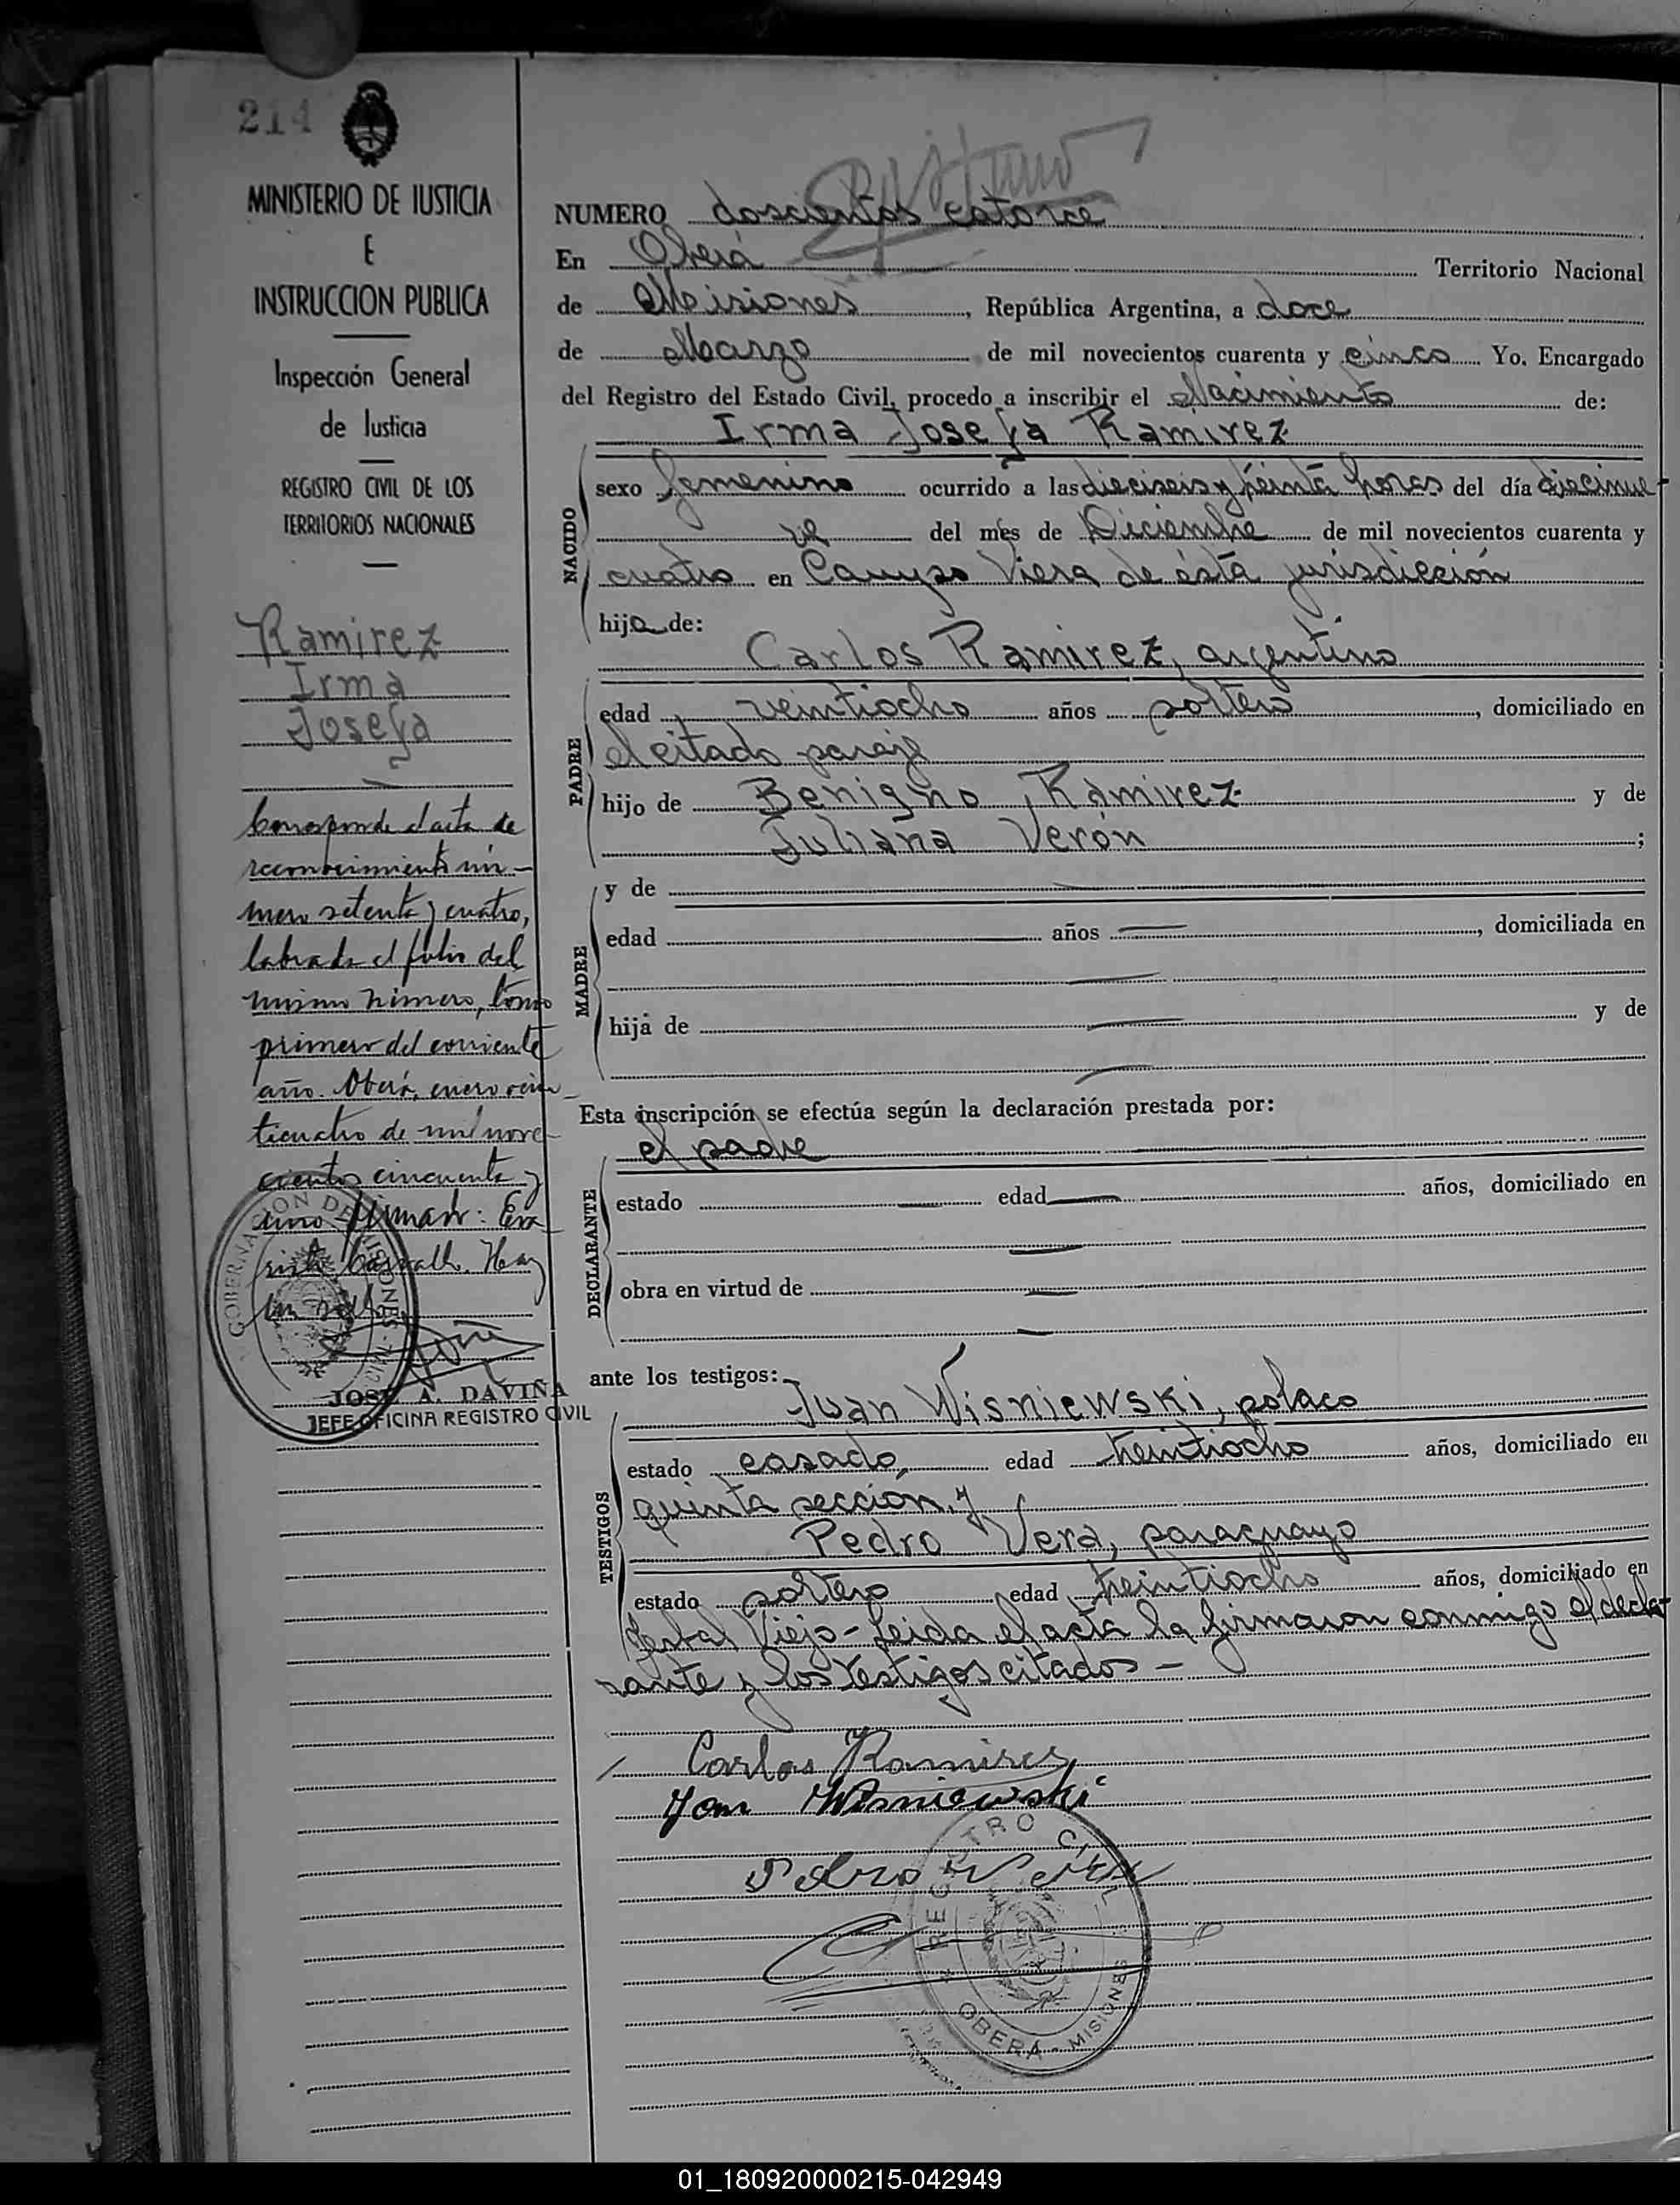 214
MINISTERIO DE JUSTICIA
E
INSTRUCCION PUBLICA
Inspección General
de Justicia
REGISTRO CIVIL DE LOS
TERRITORIOS NACIONALES
Ramirez
Irma
Josefa
Corresponde el acta de
reconocimiento nú-
mero setenta y cuatro,
labrada al folio del
mismo número, tomo
primero del corriente
año. Oberá, enero vein-
ticuatro de mil nove-
cientos cincuenta y
uno Firmado: Eva
Hay
un sello
GOBERNACION DE MISIONES
JOSE A. DAVIÑA
JEFE OFICINA REGISTRO CIVIL
NUMERO doscientos catorce
En Oberá Territorio Nacional
de Misiones, República Argentina, a doce
de Marzo de mil novecientos cuarenta y cinco Yo. Encargado
del Registro del Estado Civil, procedo a inscribir el Nacimiento de:
Irma Josefa Ramirez
NACIDO
sexo femenino ocurrido a las dieciseis y treinta horas del día diecinue-
ve del mes de Diciembre de mil novecientos cuarenta y
cuatro en Campo Viera de ésta jurisdicción
hija de:
Carlos Ramirez, argentino
PADRE
edad veintiocho años soltero, domiciliado en
el citado paraje
hijo de Benigno Ramirez y de
Juliana Verón ;
MADRE
y de
edad años , domiciliada en
hija de y de
Esta inscripción se efectúa según la declaración prestada por:
el padre
DECLARANTE
estado edad años, domiciliado en
obra en virtud de
ante los testigos:
Juan Wisniewski, polaco
TESTIGOS
estado casado, edad treintiocho años, domiciliado en
quinta sección, y
Pedro Vera, paraguayo
estado soltero edad treintiocho años, domiciliado en
Yerbal Viejo - Leida el acta la firmaron conmigo el decla-
rante y los testigos citados -
Carlos Ramires
Jan Wisniewski
Pedro Vera
REGISTRO CIVIL
OBERÁ - MISIONES
01_180920000215-042949